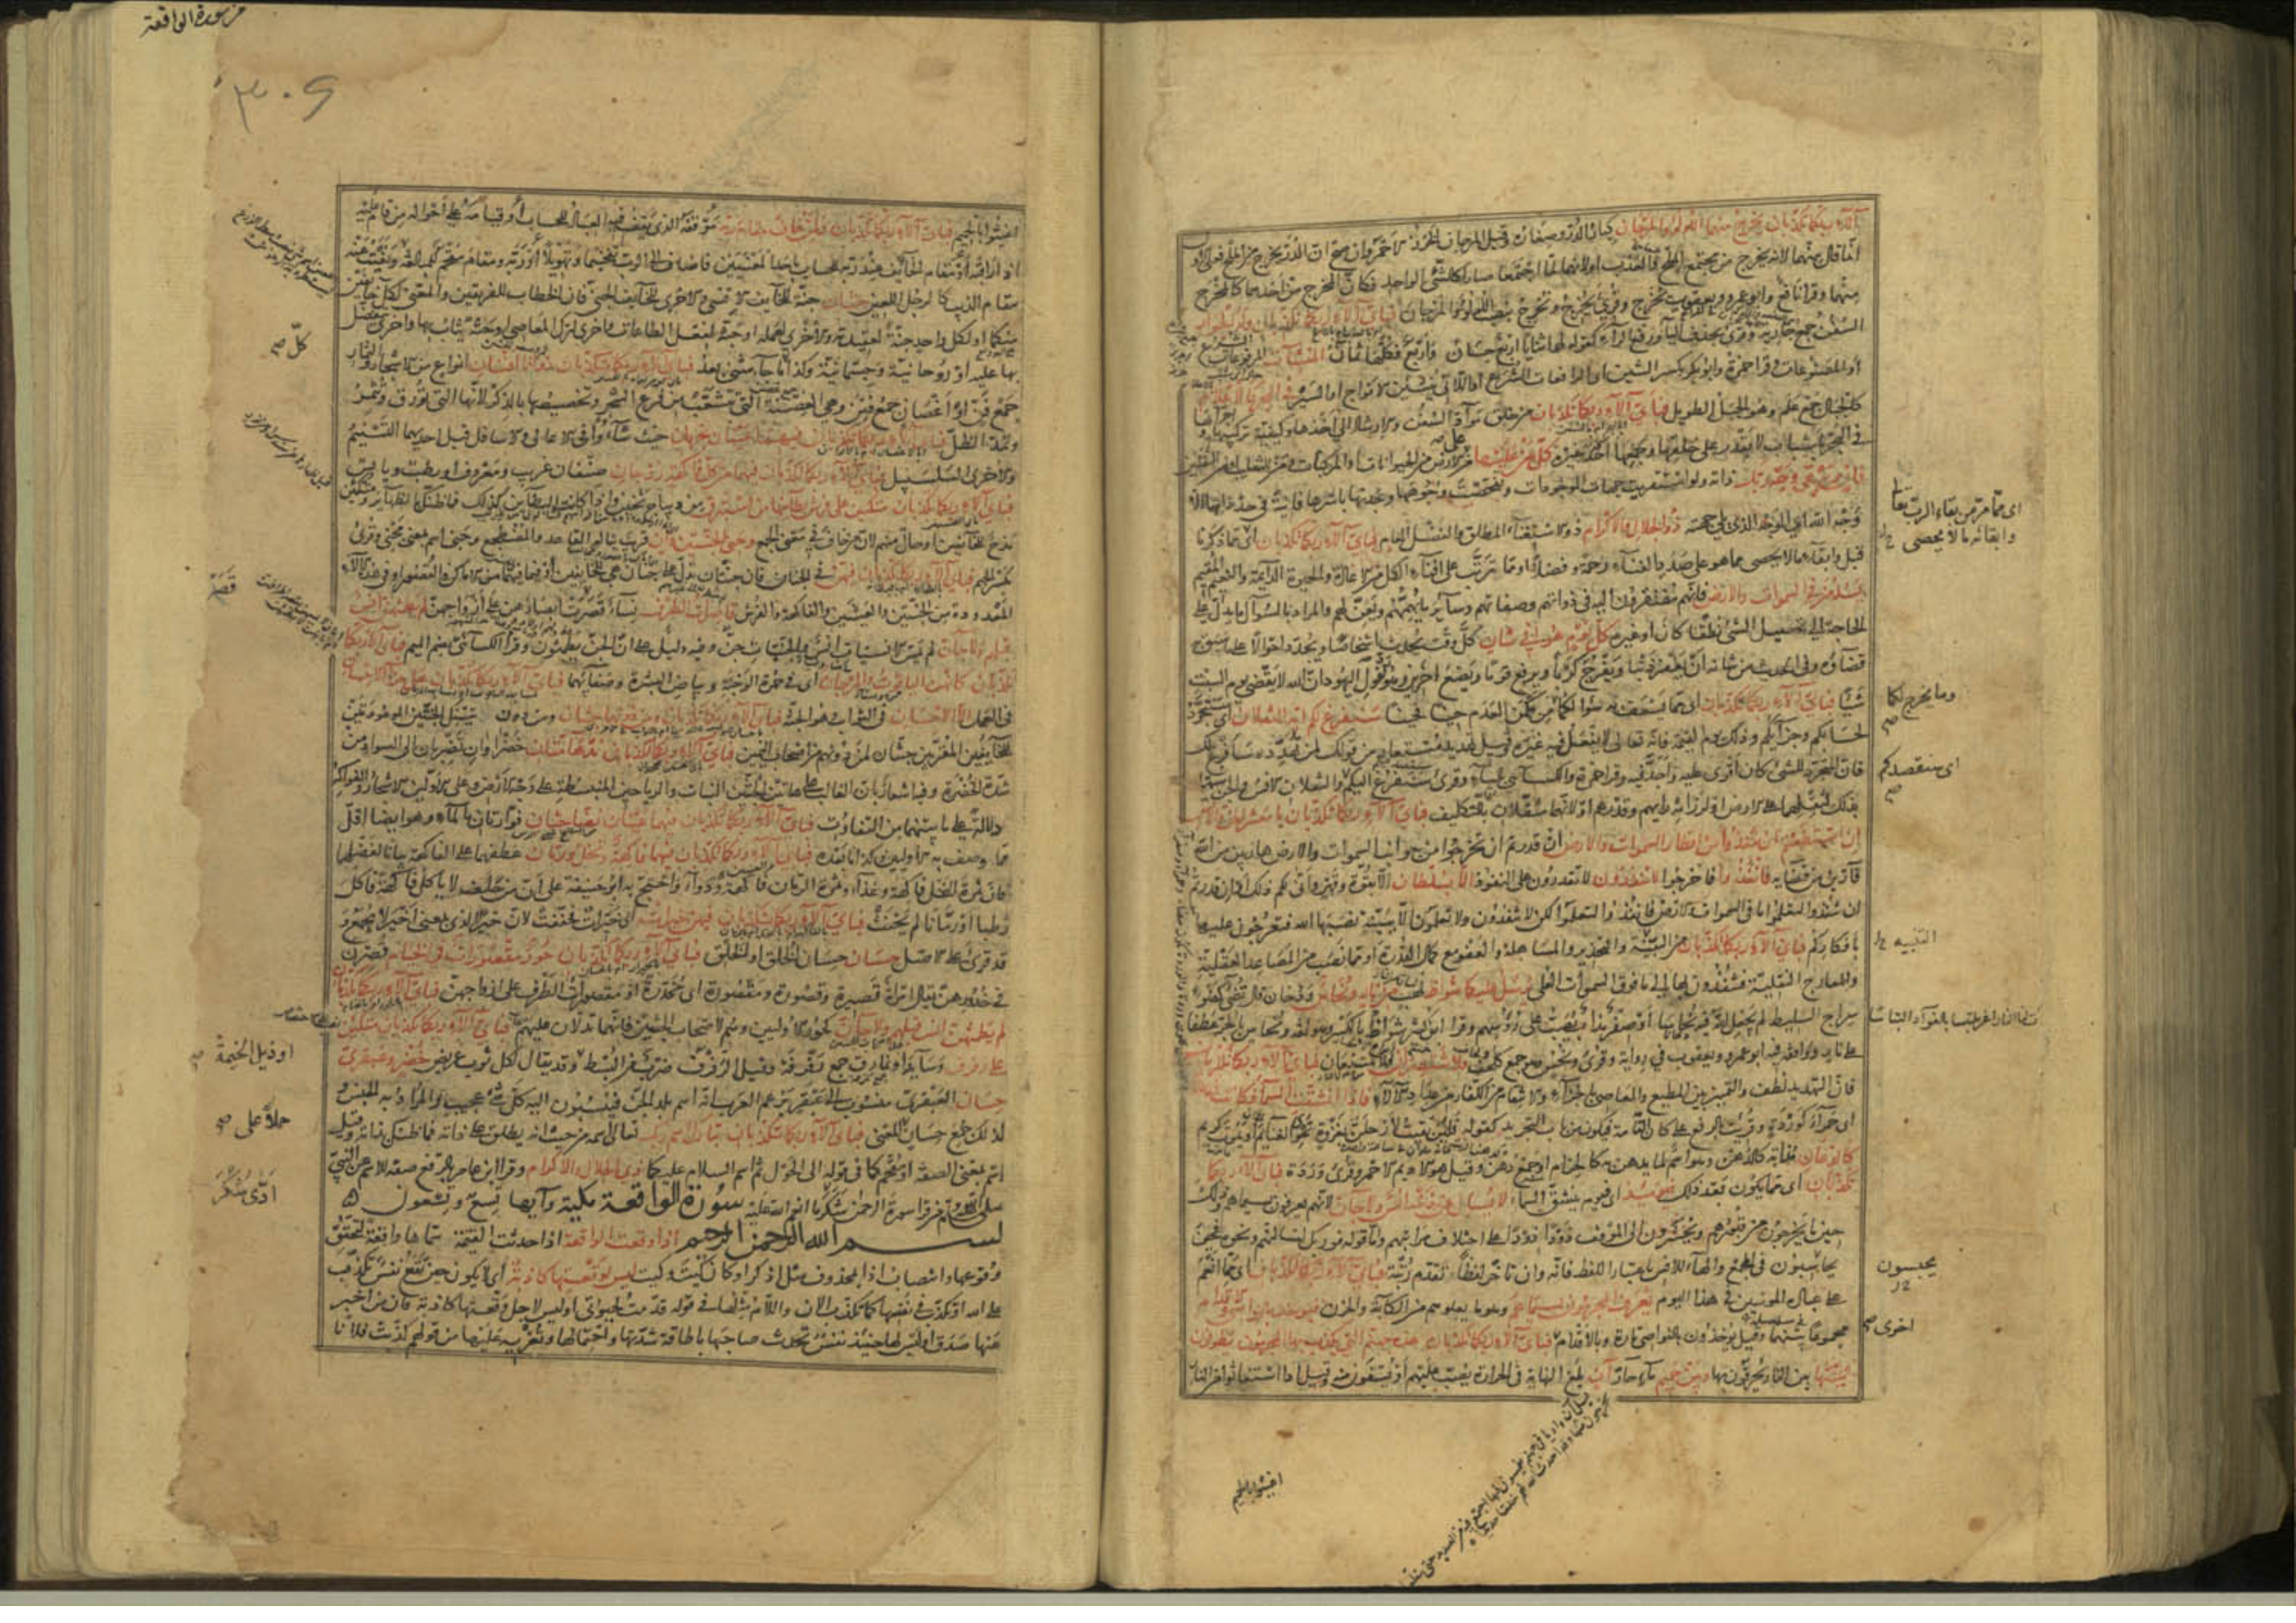 آلاء ربكما تكذبان يخرج منهما اللؤلؤ والمرجان كبار الدر وصغاره وقيل المرجان الخرز الاحمر وان صح ان الدر يخرج من الملح فعلى الاول
انما قال منهما لانه يخرج من مجتمع الملح والعذب او لانهما لما اجتمعا صارا كالشئ الواحد فكان المخرج من احدهما كالمخرج
منهما وقرأ نافع وابو عمرو ويعقوب يخرج وقرئ نخرج ويخرج بنصب اللؤلؤ والمرجان فباي آلاء ربكما تكذبان وله الجوار
السفن جمع جارية وقرئ بحذف الياء ورفع الراء كقوله لها ثنايا اربع حسان واربع فكلها ثمان المنشآت المرفوعات الشرع
او المصنوعات وقرأ حمزة وابو بكر بكسر الشين اى الرافعات الشرع او اللاتي ينشئن الامواج او السير في البحر كالاعلام
كالجبال جمع علم وهو الجبل الطويل فباي آلاء ربكما تكذبان من خلق مواد السفن والارشاد الى اخذها وكيفية تركيبها واجرائها
في البحر باسباب لا يقدر على خلقها وجمعها احد غيره كل من عليها من على الارض من الحيوانات او المركبات ومن للتغليب او من الثقلين
فان ويبقى وجه ربك ذاته ولو استقريت جهات الموجودات وتفحصت وجوهها وجدتها باسرها فانية في حد ذاتها الا
وجه الله اى الوجه الذى يلي جهته ذو الجلال والاكرام ذو الاستغناء المطلق والفضل العام فباي آلاء ربكما تكذبان اى مما ذكرنا
قبل وابقاء ما لا يحصى مما هو على صدد الفناء رحمة وفضلا او مما يترتب على افناء الكل من الاعادة والحيوة الدائمة والنعيم المقيم
يسئله من في السموات والارض فانهم مفتقرون اليه في ذواتهم وصفاتهم وسائر ما يهمهم ويعن لهم والمراد بالسؤال ما يدل على
الحاجة الى تحصيل الشئ نطقا كان او غيره كل يوم هو في شان كل وقت يحدث اشخاصا ويجدد احوالا على ما سبق به
قضاؤه وفي الحديث من شانه ان يغفر ذنبا ويفرج كربا ويرفع قوما ويضع آخرين وهو رد لقول اليهود ان الله لا يقضي يوم السبت
شيئا فباي آلاء ربكما تكذبان اى مما يسعف به سؤالكما من مكمن العدم حينا فحينا سنفرغ لكم ايه الثقلان اى سنتجرد
لحسابكم وجزائكم وذلك يوم القيمة فانه تعالى لا يفعل فيه غيره وقيل تهديد مستعار من قولك لمن تهدده سافرغ لك
فان المتجرد للشئ كان اقوى عليه واجد فيه وقرأ حمزة والكسائى بالياء وقرئ سنفرغ اليكم والثقلان الانس والجن سميا
بذلك لثقلهما على الارض او لرزانة رايهم وقدرهم او لانهما مثقلان بالتكليف فباي آلاء ربكما تكذبان يا معشر الجن والانس
ان استطعتم ان تنفذوا من اقطار السموات والارض ان قدرتم ان تخرجوا من جوانب السموات والارض هاربين من الله
فارين من قضائه فانفذوا فاخرجوا لا تنفذون لا تقدرون على النفوذ الا بسلطان الا بقوة وقهر واني لكم ذلك او ان قدرتم
ان تنفذوا لتعلموا ما في السموات والارض فانفذوا لتعلموا لكن لا تنفذون ولا تعلمون الا ببينة نصبها الله فتعرجون عليها
بافكاركم فباي آلاء ربكما تكذبان من التنبيه والتحذير والمساهلة والعفو مع كمال القدرة او مما نصب من المصاعد العقلية
والمعارج النقلية فتنفذون بها الى ما فوق السموات العلى يرسل عليكما شواظ لهب من نار ونحاس ودخان قال تضئ كضوء
سراج السليط لم يجعل الله فيه نحاسا او صفر مذاب يصب على رؤسهم وقرأ ابن كثير شواظ بالكسر وهو لغة ونحاس بالجر عطفا
على نار ووافقه فيه ابو عمرو ويعقوب في رواية وقرئ ونحس وهو جمع كلحف فلا تنتصران فلا تمتنعان فباي آلاء ربكما تكذبان
فان التهديد لطف والتمييز بين المطيع والعاصي بالجزاء والانتقام من الكفار من عداد الآلاء فاذا انشقت السماء فكانت وردة
اى حمراء كوردة وقرئت بالرفع على كان التامة فيكون من باب التجريد كقوله فلئن بقيت لارحلن بغزوة نحو الغنائم او يموت كريم
كالدهان مذابة كالدهن وهو اسم لما يدهن به كالحزام او جمع دهن وقيل هو الاديم الاحمر وقرئ وردة فباي آلاء ربكما
تكذبان اى مما يكون بعد ذلك فيومئذ اى فيوم ينشق السماء لا يسئل عن ذنبه انس ولا جان لانهم يعرفون بسيماهم وذلك
حين ما يخرجون من قبورهم ويحشرون الى الموقف ذودا ذودا على اختلاف مراتبهم واما قوله فوربك لنسألنهم ونحوه فحين
يحاسبون في المجمع والهاء للانس باعتبار اللفظ فانه وان تاخر لفظا تقدم رتبة فباي آلاء ربكما تكذبان اى مما انعم
على عباده المؤمنين في هذا اليوم يعرف المجرمون بسيماهم وهو ما يعلوهم من الكآبة والحزن فيؤخذ بالنواصي والاقدام
مجموعا بينهما وقيل يؤخذون بالنواصي تارة وبالاقدام فباي آلاء ربكما تكذبان هذه جهنم التي يكذب بها المجرمون يطوفون
بينها بين النار يحرقون بها وبين حميم ماء حار آن بلغ النهاية في الحرارة يصب عليهم او يسقون منه وقيل اذا استغاثوا من النار
اى مما مر من بقاء الرب تعالى
وابقائه ما لا يحصى
وما يخرج لكما
اى سنقصدكم
التنبيه
يحبسون
اخرى
اغيثوا بالحميم
من سورة الواقعة
٣٠٩
اغيثوا بالحميم فباي آلاء ربكما تكذبان ولمن خاف مقام ربه موقفه الذى يقف فيه العباد للحساب او قيامه على احواله من قام عليه
اذا راقبه او مقام الخائف عند ربه للحساب باحد المعنيين فاضاف الى الرب تفخيما وتهويلا او ربه ومقام مقحم للمبالغة كقوله ونفيت عنه
مقام الذئب كالرجل اللعين جنتان جنة للخائف الانسي والاخرى للخائف الجني فان الخطاب للفريقين والمعنى لكل خائفين
منكما او لكل واحد جنة لعقيدته والاخرى لعمله او جنة لفعل الطاعات واخرى لترك المعاصي او جنة يثاب بها واخرى يتفضل
بها عليه او روحانية وجسمانية وكذا ما جاء مثنى بعد فباي آلاء ربكما تكذبان ذواتا افنان انواع من الاشجار والثمار
جمع فن او اغصان جمع فنن وهي الغصنة التي تتشعب من فرع الشجر وتخصيصها بالذكر لانها التي تورق وتثمر
وتمد الظل فباي آلاء ربكما تكذبان فيهما عينان تجريان حيث شاؤا في الاعالي والاسافل قيل احديهما التسنيم
والاخرى السلسبيل فباي آلاء ربكما تكذبان فيهما من كل فاكهة زوجان صنفان غريب ومعروف او رطب ويابس
فباي آلاء ربكما تكذبان متكئين على فرش بطائنها من استبرق من ديباج ثخين واذا كانت البطائن كذلك فما ظنك بالظهائر ومتكئين
مدح للخائفين او حال منهم لان من خاف في معنى الجمع وجنى الجنتين دان قريب يناله القاعد والمضطجع وجنى اسم بمعنى مجنى وقرئ
بكسر الجيم فباي آلاء ربكما تكذبان فيهن في الجنان فان جنتان يدل على جنان هي للخائفين او فيما فيهما من الاماكن والقصور او في هذه الآلاء
المعدودة من الجنتين والعينين والفاكهة والفرش قاصرات الطرف نساء قصرن ابصارهن على ازواجهن لم يطمثهن انس
قبلهم ولا جان لم يمس الانسيات انس ولا الجنيات جن وفيه دليل على ان الجن يطمثون وقرأ الكسائى بضم الميم فباي آلاء ربكما
تكذبان كانهن الياقوت والمرجان اى في حمرة الوجنة وبياض البشرة وصفائهما فباي آلاء ربكما تكذبان هل جزاء الاحسان
في العمل الا الاحسان في الثواب وهو الجنة فباي آلاء ربكما تكذبان ومن دونهما جنتان ومن دون تينك الجنتين الموعودتين
للخائفين المقربين جنتان لمن دونهم من اصحاب اليمين فباي آلاء ربكما تكذبان مدهامتان خضراوان تضربان الى السواد من
شدة الخضرة وفيه اشعار بان الغالب على هاتين الجنتين النبات والرياحين المنبسطة على وجه الارض وعلى الاولين الاشجار والفواكه
دلالة على ما بينهما من التفاوت فباي آلاء ربكما تكذبان فيهما عينان نضاختان فوارتان بالماء وهو ايضا اقل
مما وصف به الاوليين وكذا ما بعده فباي آلاء ربكما تكذبان فيهما فاكهة ونخل ورمان عطفهما على الفاكهة بيانا لفضلهما
فان ثمرة النخل فاكهة وغذاء وثمرة الرمان فاكهة ودواء واحتج به ابو حنيفة على ان من حلف لا ياكل فاكهة فاكل
رطبا او رمانا لم يحنث فباي آلاء ربكما تكذبان فيهن خيرات اى خيرات فخففت لان خيرا الذى بمعنى اخير لا يجمع و
قد قرئ على الاصل حسان حسان الخلق والخلق فباي آلاء ربكما تكذبان حور مقصورات في الخيام قصرن
في خدورهن يقال امرأة قصيرة وقصورة ومقصورة اى مخدرة او مقصورات الطرف على ازواجهن فباي آلاء ربكما تكذبان
لم يطمثهن انس قبلهم ولا جان كحور الاوليين وهم لاصحاب الجنتين فانهما يدلان عليهم فباي آلاء ربكما تكذبان متكئين
على رفرف وسائد او نمارق جمع رفرفة وقيل الرفرف ضرب من البسط وقد يقال لكل ثوب عريض خضر وعبقري
حسان العبقري منسوب الى عبقر يزعم العرب انه اسم بلد الجن فينسبون اليه كل شئ عجيب والمراد به الجنس و
لذلك جمع حسان للمعنى فباي آلاء ربكما تكذبان تبارك اسم ربك تعالى اسمه من حيث انه يطلق على ذاته فما ظنك بذاته وقيل
اسم بمعنى الصفة او مقحم كما في قوله الى الحول ثم اسم السلام عليكما ذي الجلال والاكرام وقرأ ابن عامر بالرفع صفة للاسم عن النبي
صلى الله عليه وسلم من قرأ سورة الرحمن شكر ما انعم الله عليه سورة الواقعة مكية وآيها تسع وتسعون
بسم الله الرحمن الرحيم اذا وقعت الواقعة اذا حدثت القيمة سماها واقعة لتحقق
وقوعها وانتصاب اذا بمحذوف مثل اذكر او كان كيت وكيت ليس لوقعتها كاذبة اى لا يكون حين تقع نفس تكذب
على الله او تكذب في نفيها كما تكذب الان واللام مثلها في قوله قدمت لحيوتي او ليس لاجل وقعتها كاذبة فان من اخبر
عنها صدق او ليس لها حينئذ نفس تحدث صاحبها باطاقة شدتها واحتمالها وتغريه عليها من قولهم كذبت فلانا
كل
قصر
او ذيل الخيمة
حملا على
ادى شكر